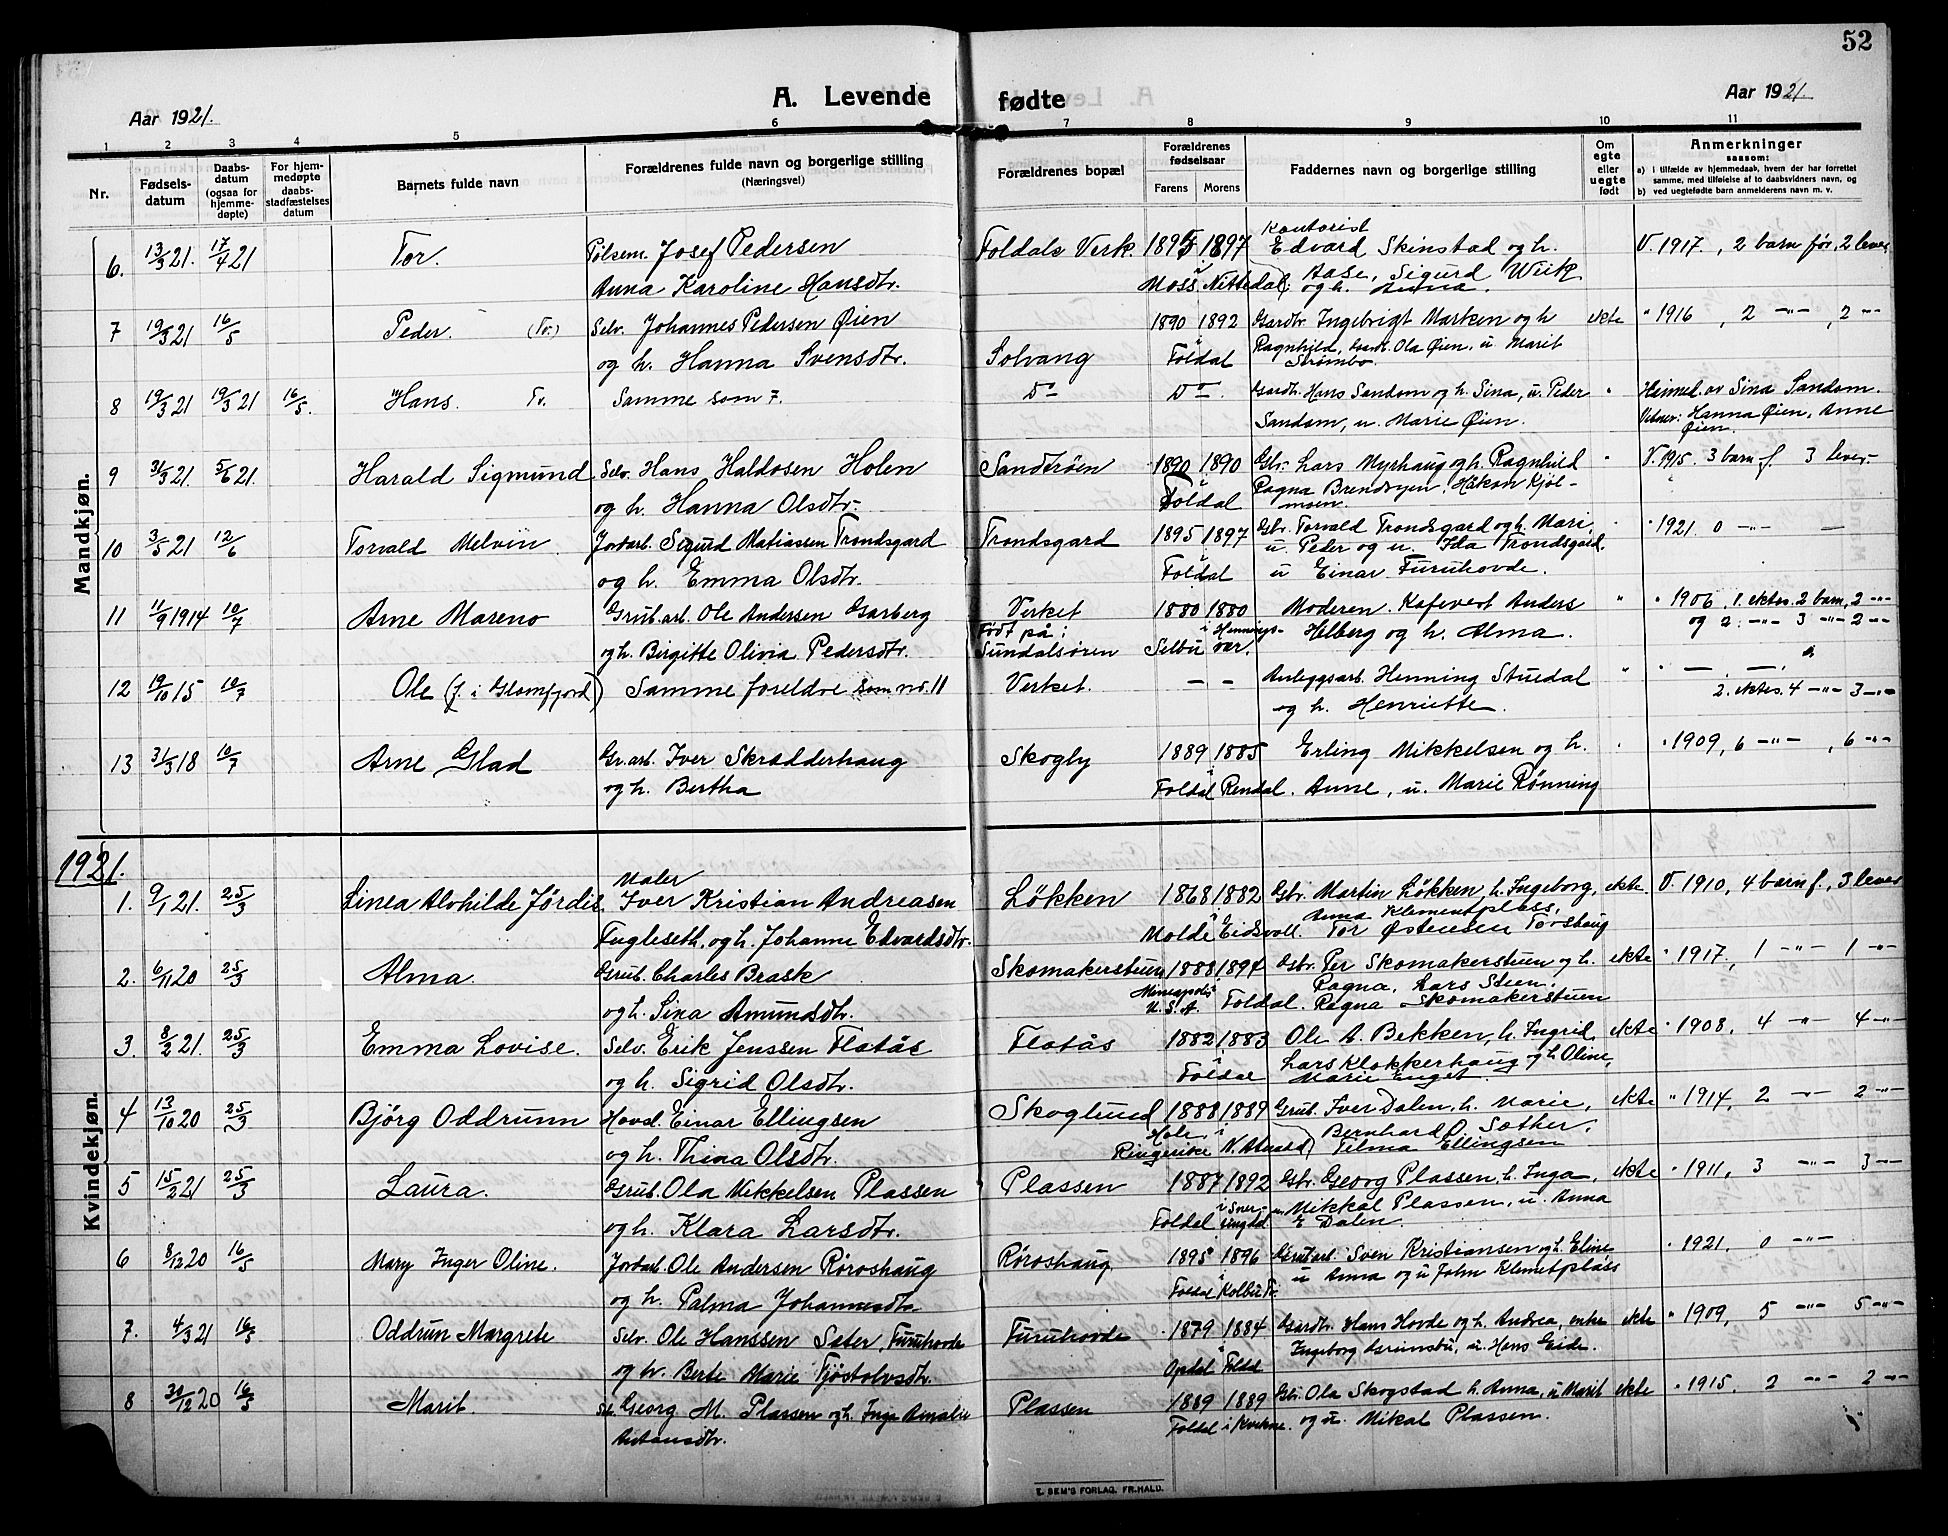 52
A. Levende fødte
Aar 1921.
Aar 1921.
1 2 3 4 5 6 7 8 9 10 11
Nr.
Fødsels-datum
Daabs-datum (ogsaa for hjemme-døpte)
For hjem-medøpte daabs-stadfæstelses datum
Barnets fulde navn
Forældrenes fulde navn og borgerlige stilling
(Næringsvei)
Forældrenes bopæl
Forældrenes fødselsaar
Farens Morens
Faddernes navn og borgerlige stilling
Om egte eller uegte født
Anmerkninger
saasom:
a) i tilfælde av hjemmedaab, hvem der har forrettet samme, med tilføielse af to daabsvidners navn, og
b) ved uegtefødte barn anmelderens navn m. v.
Mandkjøn.
6. 13/3 21. 17/4 21 Tor. Pølsem. Josef Pedersen Foldals Verk. 1895 1897 Kontorist Edvard Skinstad og h. V. 1917. , 2 barn før, 2 lever
Anna Karoline Hansdtr. Moss Nittedal; Aase, Sigurd Wiik og h. Anna.
7 19/3 21 16/5 Peder. (Tv.) Selv. Johannes Pedersen Øien 1890 1892 Gardbr. Ingebrigt Marken og h ekte " 1916 , 2 -"- , 2 -"-
og h. Hanna Svensdtr. Solvang Foldal Ragnhild, Ola Øien, u. Marit Strømbo.
8 19/3 21 19/3 21 16/5. Hans. Tv. Samme som 7. Do Do Gardbr. Hans Sandom og h. Sina, u. Peder " Heimed. av Sina Sandom.
Sandom, u. Marie Øien. Vitner: Hanna Øien, Anne Øien.
9 31/3 21 5/6 21. Harald Sigmund Selv. Hans Haldosen Holen Sandtrøen 1890 1890 Gbr. Lars Myrhaug og h. Ragnhild " V. 1915. 3 barn f. 3 lever
og h. Hanna Olsdtr. Foldal Ragna Brendryen, Håkon Kjølmoen.
10 3/5 21 12/6 Torvald Melvin. Jordarb. Sigurd Matiassen Trondsgard Trondsgard 1895 1897 Gbr. Torvald Trondsgard og h. Mari " 1921. 0 -"- —
og h. Emma Olsdtr. Foldal u. Peder og u. Ida Trondsgard. u Einar Furuhovde.
11 11/9 1914 10/7 Arne Mareno Grub.arb. Ole Andersen Garberg Verket 1880 1880 Moderen. Kafevert Anders " " 1906, 1. ektes. 2 barn, 2 -"-
og h. Birgitte Olivia Pedersdtr. Født på: Sundalsøren Selbu i Henningsvær. Helberg og h. Alma. og 2. -"- 3 -"- 2 -"-
12 19/10 15 10/7 Ole (f. i Glomfjord) Samme foreldre som nr. 11 Verket. — — Anleggsarb. Henning Stuedal " " — —
og h. Henriette. 2. ektes. 4 -"- 3 -"-
13 31/3 18 10/7 Arne Glad Gr.arb. Iver Skrædderhaug Skogly 1889 1885 Erling Mikkelsen og h. " " 1909, 6 -"- , 6 -"-
og h. Bertha Foldal Rendal. Anne, u. Marie Rønning
1921.
Kvindekjøn.
1. 9/1 21. 25/3 Linea Alvhilde Jørdis Maler Iver Kristian Andreasen Løkken 1868 1882 Gbr. Martin Løkken, h. Ingeborg, ekte V. 1910, 4 barn f., 3 lever
Fugleseth, og h. Johanne Edvardsdtr. Molde Eidsvoll. Anna Klementplass, Tor Østensen Torshaug
2. 6/11 20 25/3 Alma. Grub. Charles Brask Skomakerstuen 1888 1894 Gbr. Per Skomakerstuen og h. ekte " 1917, 1 -"- 1 -"-
og h. Sina Amundsdtr. Mineapolis U.S.A. Foldal. Ragna, Lars Steen. Ragna Skomakerstuen
3. 8/2 21. 25/3 Emma Lovise. Selv. Erik Jenssen Flatås Flatås 1882 1883 Ole A. Bekken, h. Ingrid, ekte " 1908, 4 -"- 4 -"-
og h. Sigrid Olsdtr. Foldal Lars Klokkerhaug og h. Oline, Marie Enget.
4 13/10 20 25/3 Bjørg Oddrunn Hovd. Einar Ellingsen Skoglund 1888 1889 Grub. Iver Dalen, h. Marie, ekte " 1914, 2 -"- 2 -"-
og h. Thina Olsdtr. Hole Ringerike i N. Atnedal Bernhard O. Sæther, Tilma Ellingsen
5 15/2 21 25/3 Laura. Grub. Ola Mikkelsen Plassen Plassen 1887 1892 Gbr. Georg Plassen, h. Inga, ekte " 1911, 3 -"- 3 -"-
og h. Klara Larsdtr. Foldal i Snersingdal Mikkal Plassen, u. Anna E Dalen.
6 8/12 20 16/5 Mary Inger Oline. Jordarb. Ole Andersen Røroshaug Røroshaug 1895 1896 Grubarb. Sven Kristiansen og h. Eline, " 1921, 0 -"-
og h. Palma Johannesdtr. Foldal Kolbu Tr. u Anna og u John Klemetplass
7. 4/3 21 16/5 Oddrun Margrete Selv. Ole Hanssen Sæter, Furuhovde Furuhovde 1879 1884 Gardbr. Hans Hovde og h. Andrea, enke ekte " 1909, 5 -"- 5 -"-
og h. Berte Marie Tjøstolvsdtr. Opdal Foldal Ingeborg Grimsbu, u. Hans Eide.
8 30/12 20 16/5 Marit. Georg M. Plassen og h. Inga Amalie Plassen 1889 1889 Gbr. Ola Skogstad h. Anna, u Marit ekte " 1915. 2 -"- 2 -"-
Antonsdtr. Foldal i Kvikne. og u. Mikal Plassen.
E. SEM'S FORLAG, FR.HALD.